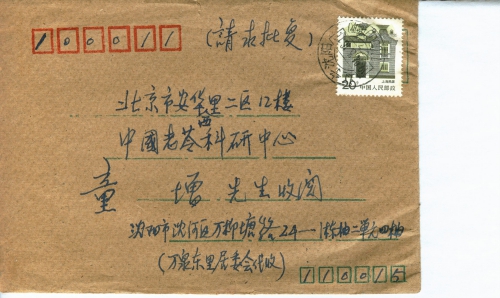 100011
(請求批复)
20 中国人民邮政
北京市安华里二区12楼
西
中國老龄科研中心
童增先生收阅
沈阳市沈河区万柳塘路24—1栋抽二單元四抽
(万泉东里居委会代收)
110015